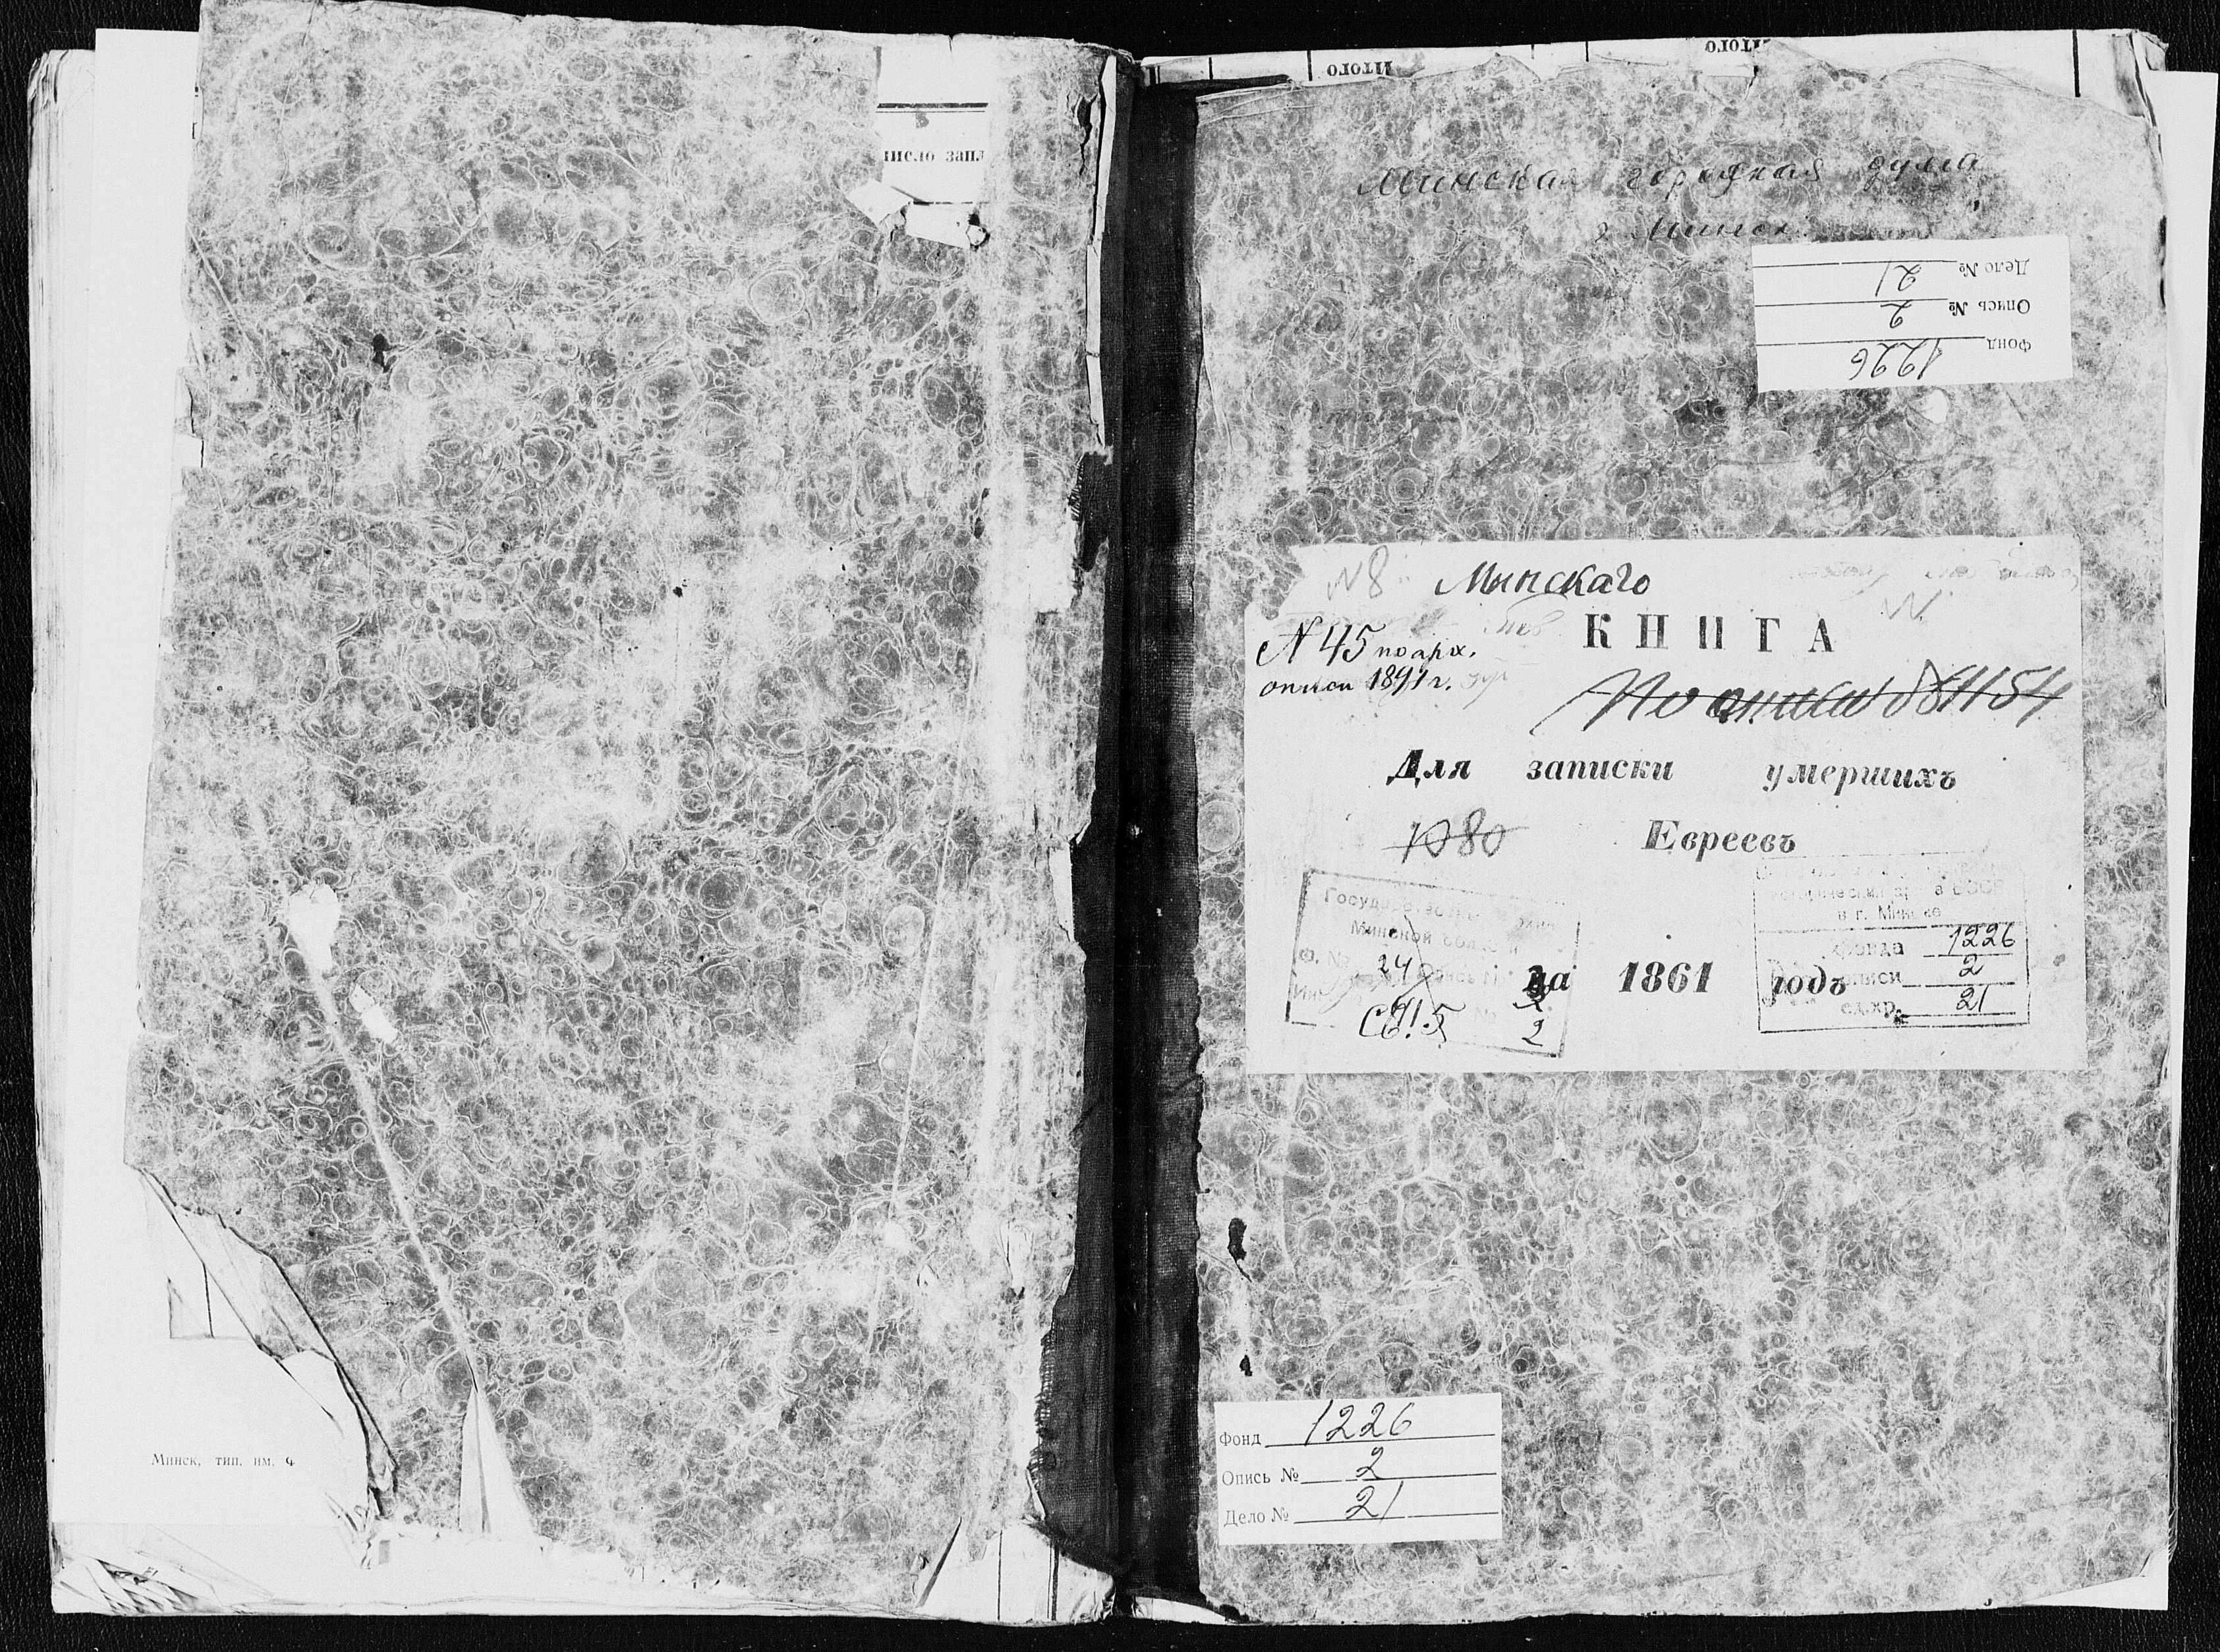 Итого
Итого
число запл
Минская городская дума
г Минск
Дело № 21
Опись № 2
Фонд 1226
N 8 Минскаго
КНИГА
N 45 по арх.
описи 1891 г.
По описи № 1154
Для записки умершихъ
1080 Евреевъ
Государственный архив
Минской области
Ф. № 24 Опись №
Св. 5 2
исторический архив БССР
в г. Минске
фонда 1226
описи 2
ед.хр. 21
на 1861 годъ
Фонд 1226
Опись № 2
Дело № 21
Минск, тип. им.